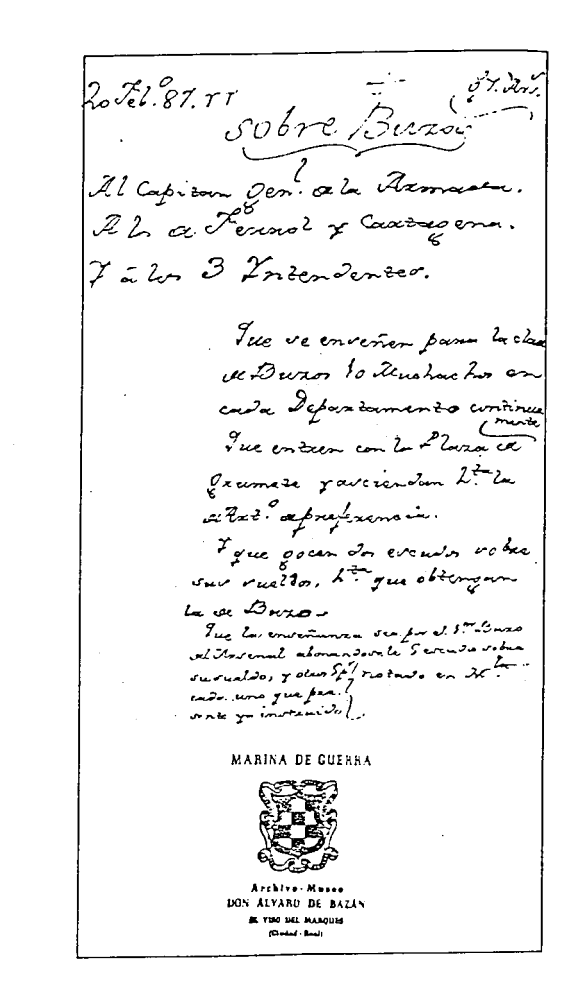 20 Feb.º 87.
Sobre Buzos
Al Capitan Gen.l de la Armada.
A los de Ferrol y Cartagena.
Y á los 3 Yntendentes.
Que se enseñen para la clase
de Buzos 10 Muchachos en
cada Departamento continua
mente
Que entren con la Plaza de
Grumete y asciendan h.ta la
de Art.º de preferencia.
Y que gocen dos escudos sobre
sus sueldos, h.ta que obtengan
la de Buzos
Que la enseñanza sea por el 1.er Buzo
del Arsenal abonandosele 5 escudos sobre
su sueldo, y otra
cada uno que pre
sente ya instruido.
MARINA DE GUERRA
Archivo-Museo
DON ALVARO DE BAZÁN
EL VISO DEL MARQUES
(Ciudad-Real)